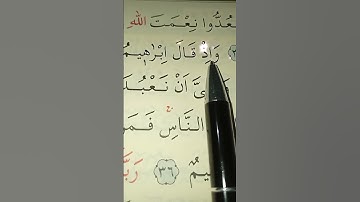 تَعُدُّوا نِعْمَتَ اللّٰهِ
وَاِذْ قَالَ اِبْرٰه۪يمُ
اَنْ نَعْبُدَ
النَّاسِ فَمَنْ
﴿٣٦﴾ رَبَّ